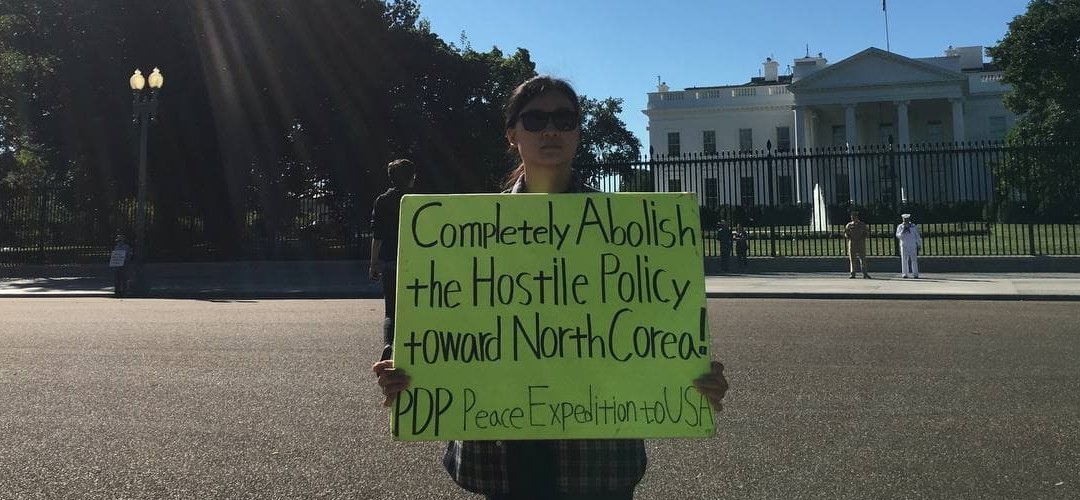 Completely Abolish
the Hostile Policy
toward North Corea!
PDP Peace Expedition to USA